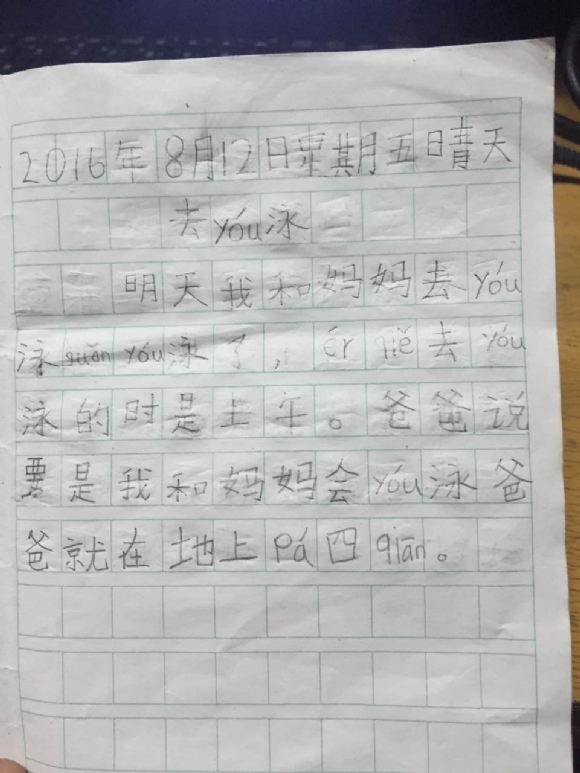 2016年8月12日星期五晴天
去yóu泳
明天我和妈妈去yóu
泳guǎn yóu泳了，ér qiě去yóu
泳的时是上午。爸爸说
要是我和妈妈会yóu泳爸
爸就在地上Pá四qiān。